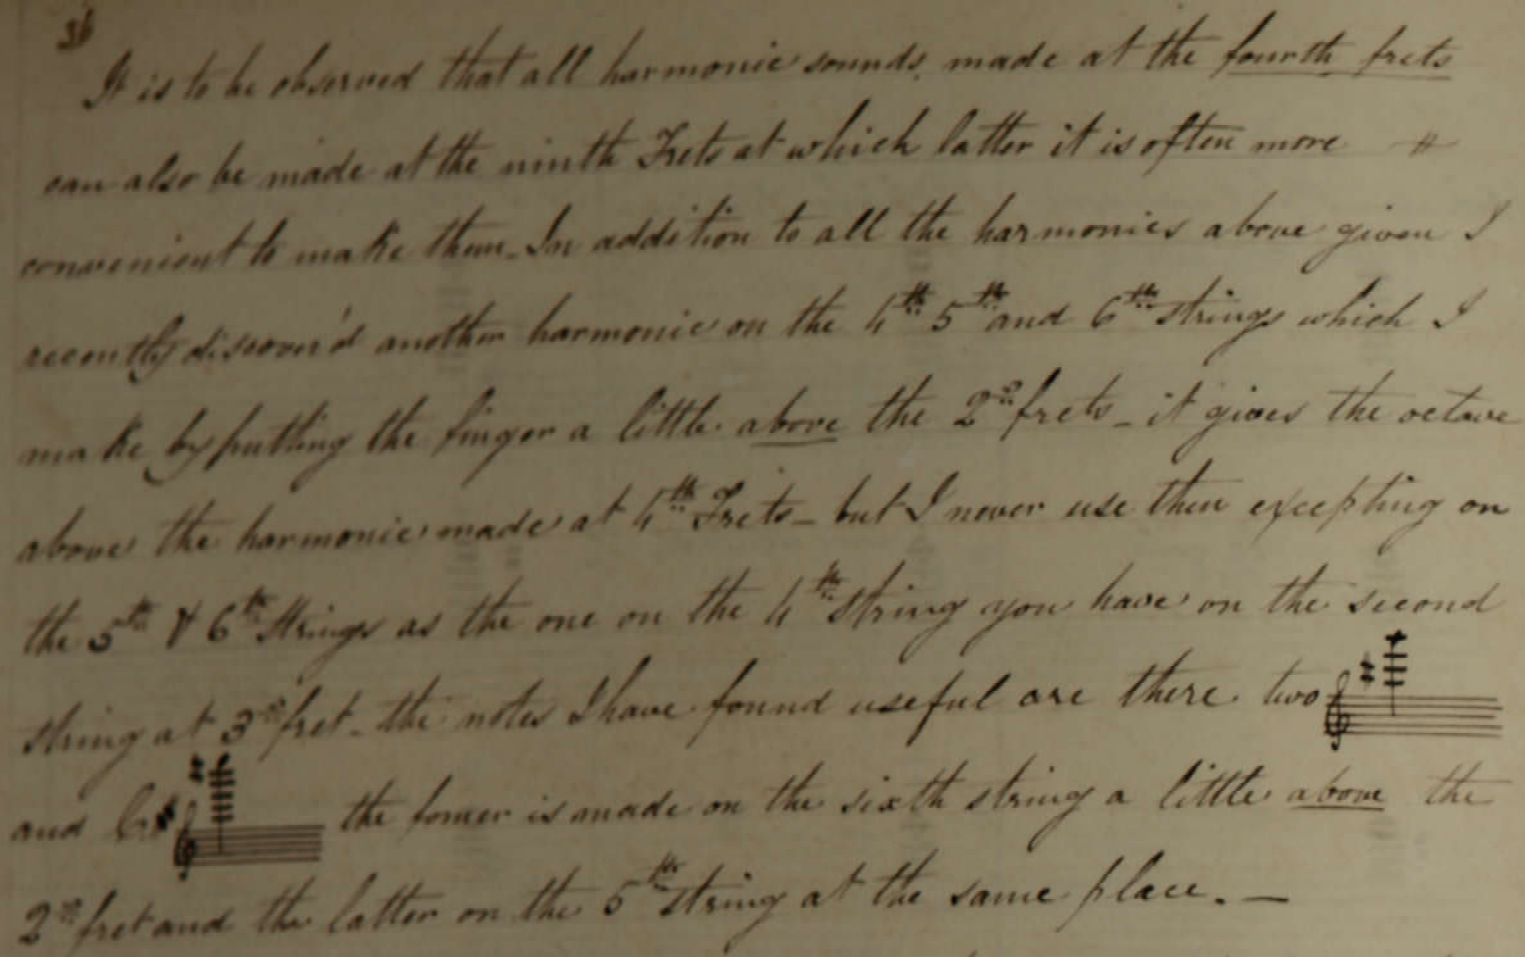 36
It is to be observed that all harmonic sounds, made at the fourth frets
can also be made at the ninth Frets at which latter it is often more
convenient to make them - In addition to all the harmonics above given I
recently discover'd another harmonic on the 4th 5th and 6th strings which I
make by putting the finger a little above the 2nd frets - it gives the octave
above the harmonic made at 4th Frets - but I never use them excepting on
the 5th & 6th Strings as the one on the 4th string you have on the second
string at 3rd fret - the notes I have found useful are there two
and the former is made on the sixth string a little above the
2nd fret and the latter on the 5th string at the same place. -